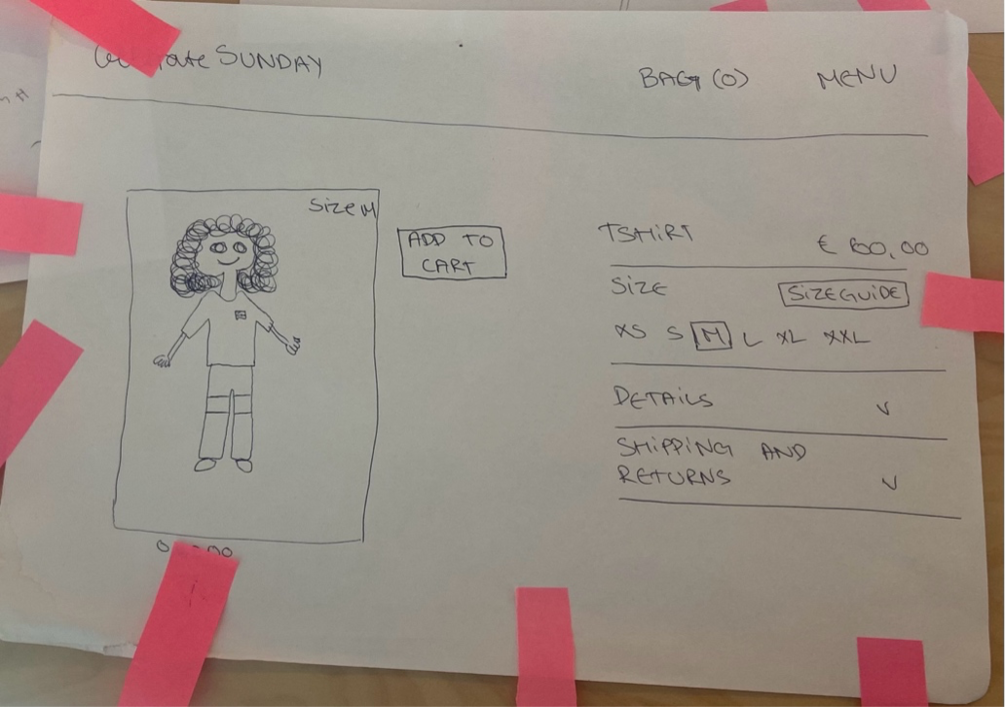 SUNDAY
BAG (0)
MENU
Size M
ADD TO
CART
TSHiRT
SiZE
SiZEGUiDE
XS S M L XL XXL
DETAiLS
SHiPPiNG AND
RETURNS